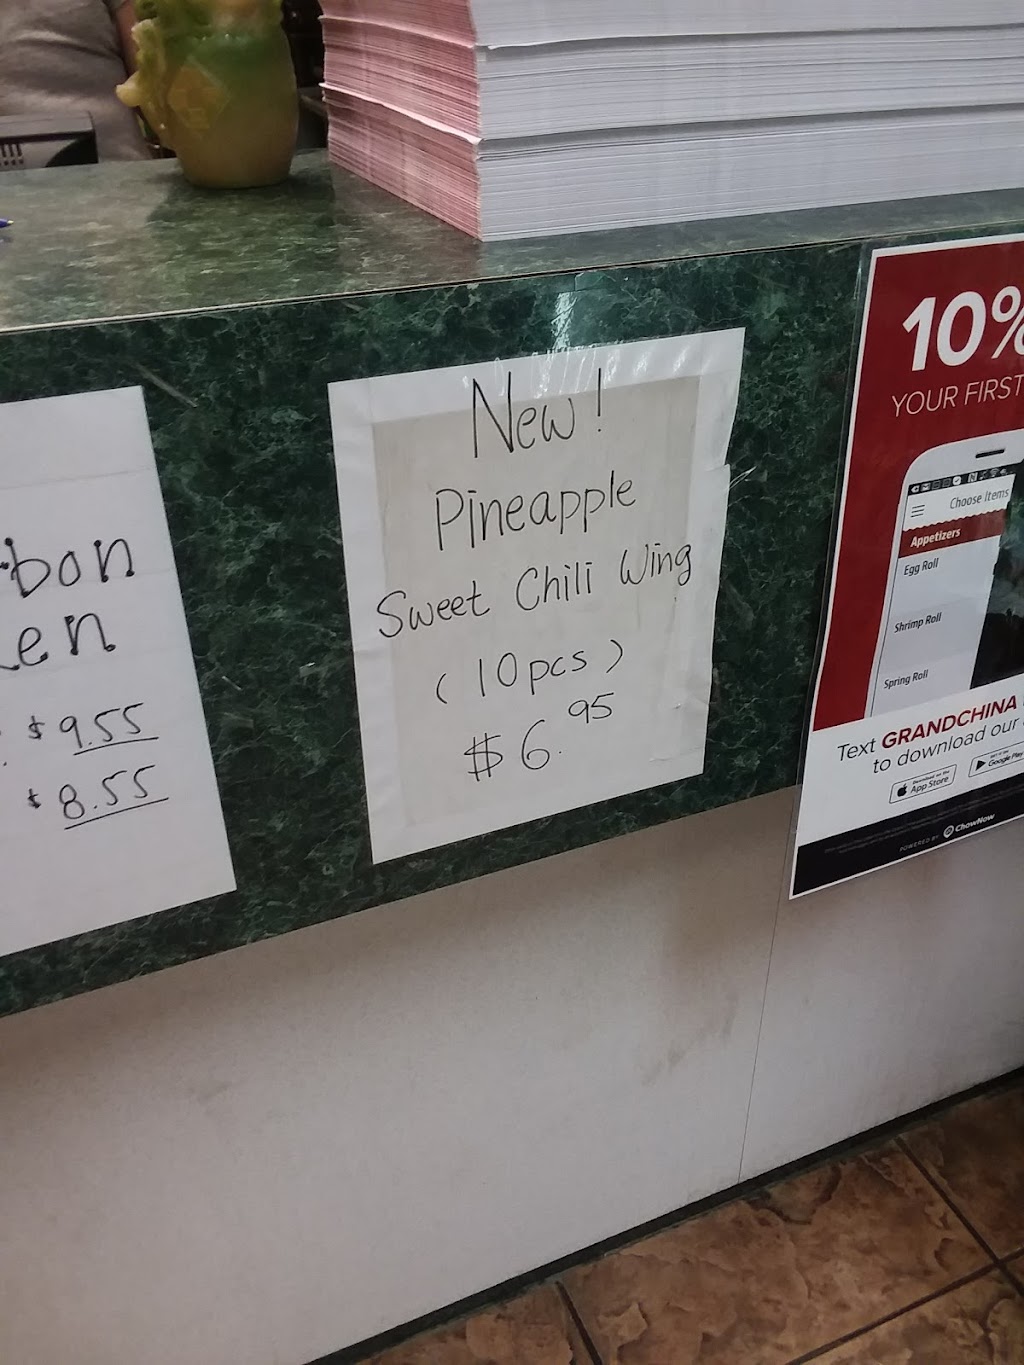 bon
en
$9.55
$8.55
New!
Pineapple
Sweet Chili Wing
(10pcs)
$6.95
10%
YOUR FIRST
Choose Items
Appetizers
Egg Roll
Shrimp Roll
Spring Roll
Text GRANDCHINA
to download our
Download on the
App Store
GET IT ON
Google Play
POWERED BY ChowNow